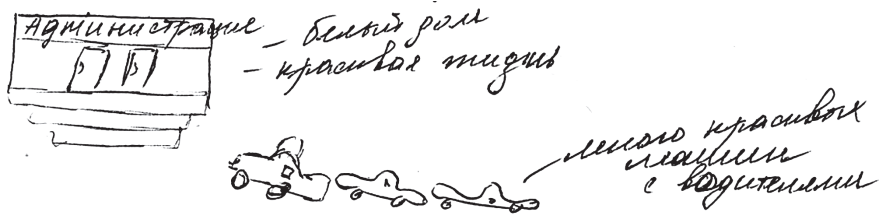 Администрация
- белый дом
- красивая жизнь
много красивых
машин
с водителями